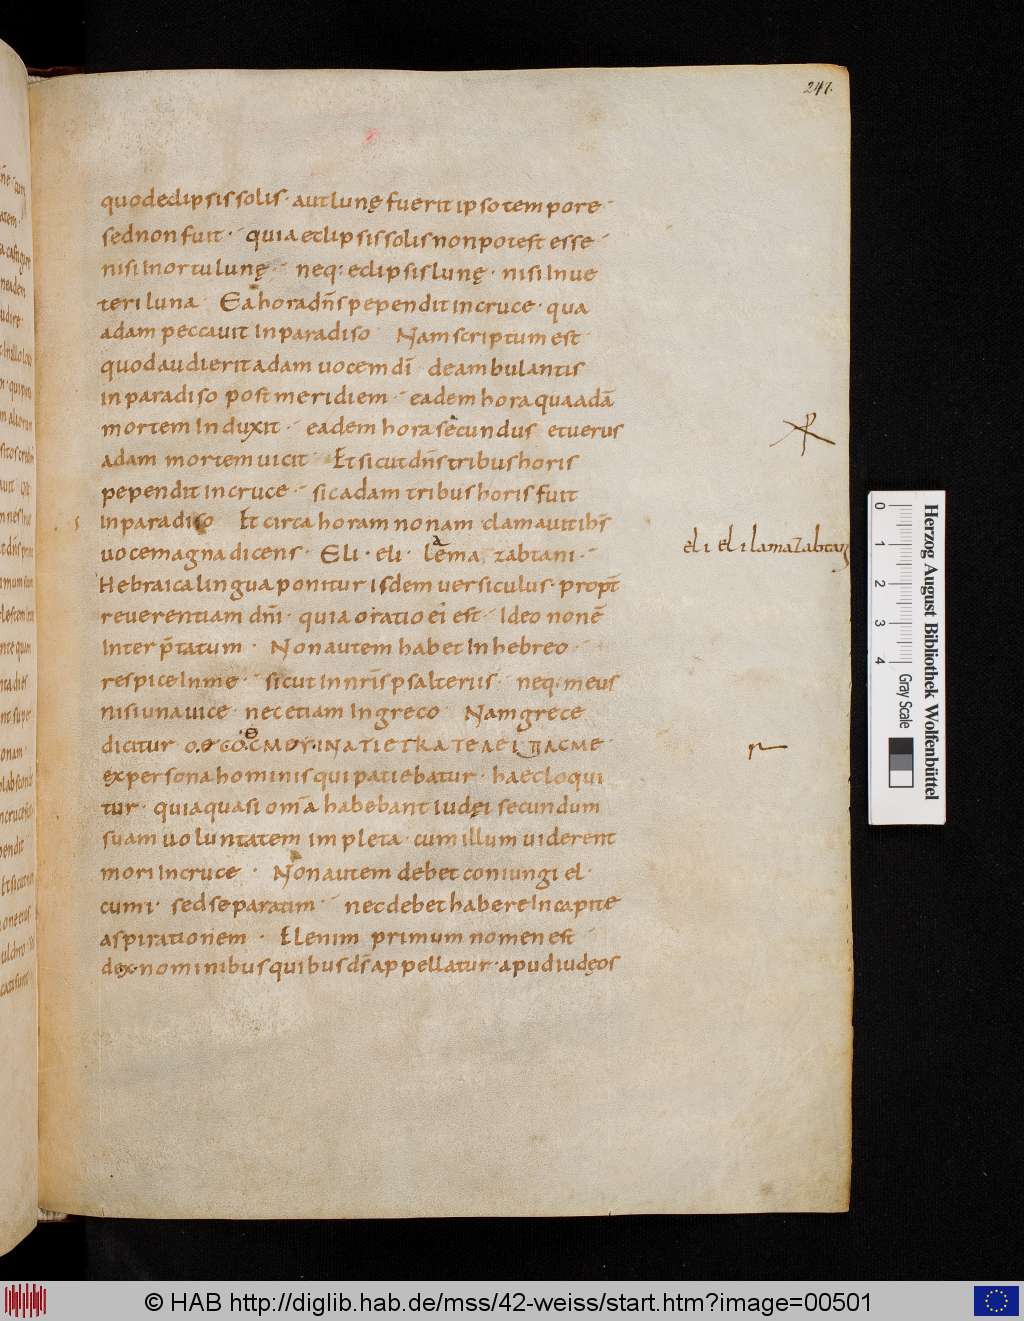 247.
quodeclipsissolis· autlunę fuerit ipsotempore·
sednonfuit· quiaeclipsissolisnonpotest esse·
nisi Inortulunę· neq: eclipsislunę· nisi Inue
teri luna· Eahoradn̄s pependit incruce· qua
adam peccauit Inparadiso Namscriptum est·
quodaudierit adam uocem dī deambulantis
inparadiso post meridiem· eadem hora quaadā
mortem Induxit· eadem hora secundus et uerus
adam mortem uicit Et sicut dn̄s tribus horis
pependit incruce· sicadam tribus horis fuit
Inparadiso Et circa horam nonam clamauit ih̄s
uocemagna dicens· Eli· eli· lema zabtani·
eli eli lamaZabtani
Hebraicalingua ponitur isdem uersiculus· propt̄
reuerentiam dn̄i· quia oratio ei est· Ideo non ē
Interp̄tatum· Nonautem habet Inhebreo·
respiceInme· sicut Innr̄is psalteriis· neq: meus
nisiunauice· necetiam Ingreco Namgrece
dicitur
expersona hominis qui patiebatur· haecloqui
tur· quiaquasi om̄a habebant iudęi secundum
suam uoluntatem impleta· cum illum uiderent
mori Incruce· Nonautem debet coniungi el·
cumi· sedseparatim· necdebethabereIncapite
aspirationem· El enim primum nomen est
dex·nominibusquibusds̄ appellatur·apudiudęos
0 1 2 3 4
Gray Scale
Herzog August Bibliothek Wolfenbüttel
© HAB http://diglib.hab.de/mss/42-weiss/start.htm?image=00501